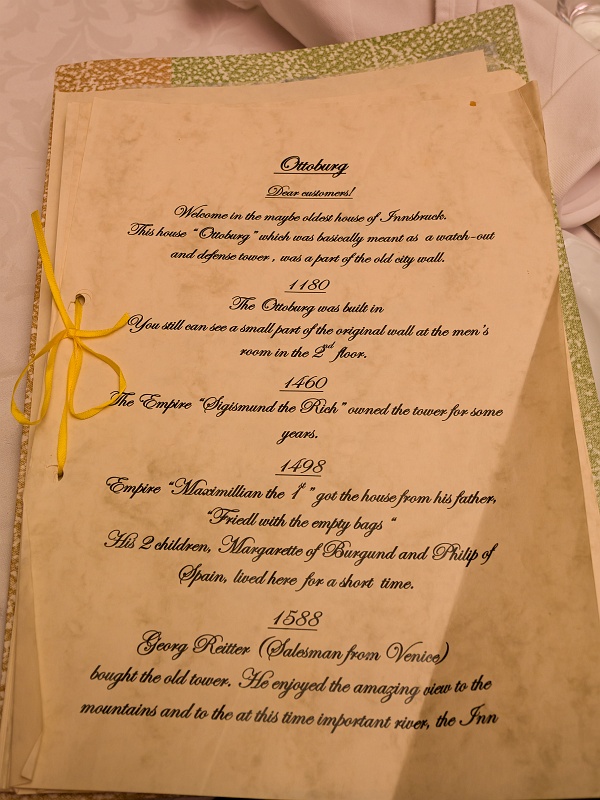 Ottoburg
Dear customers!
Welcome in the maybe oldest house of Innsbruck.
This house "Ottoburg" which was basically meant as a watch-out
and defense tower , was a part of the old city wall.
1180
The Ottoburg was built in
You still can see a small part of the original wall at the men's
room in the 2nd floor.
1460
The Empire "Sigismund the Rich" owned the tower for some
years.
1498
Empire "Maximillian the 1st " got the house from his father,
"Friedl with the empty bags "
His 2 children, Margarette of Burgund and Philip of
Spain, lived here for a short time.
1588
Georg Reitter (Salesman from Venice)
bought the old tower. He enjoyed the amazing view to the
mountains and to the at this time important river, the Inn